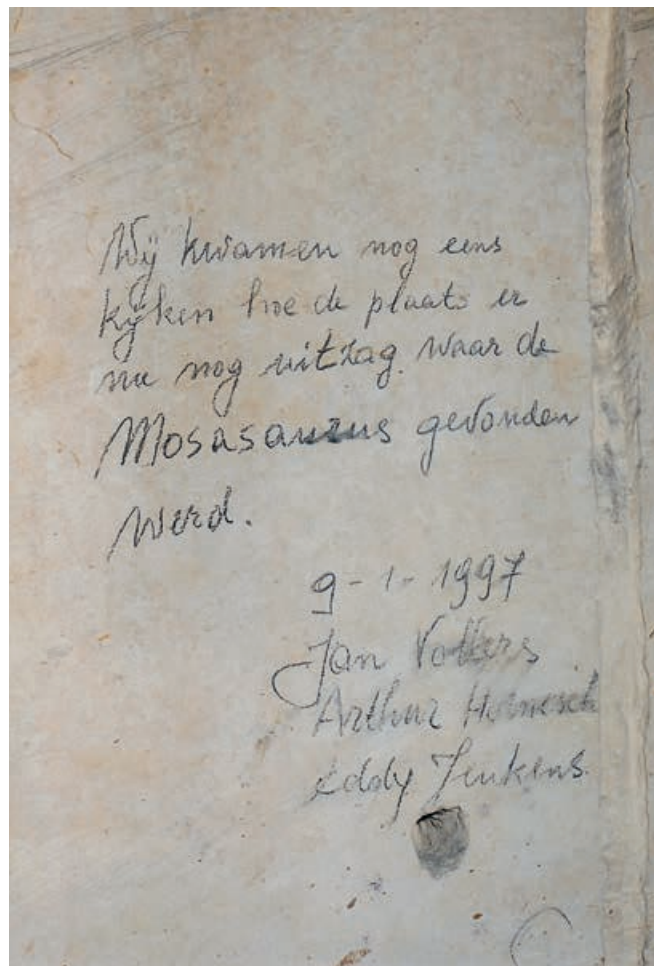 Wij kwamen nog eens
kijken hoe de plaats er
nu nog uitzag waar de
Mosasaurus gevonden
werd.
9-1-1997
Jan
Arthur
Eddy Jenkens